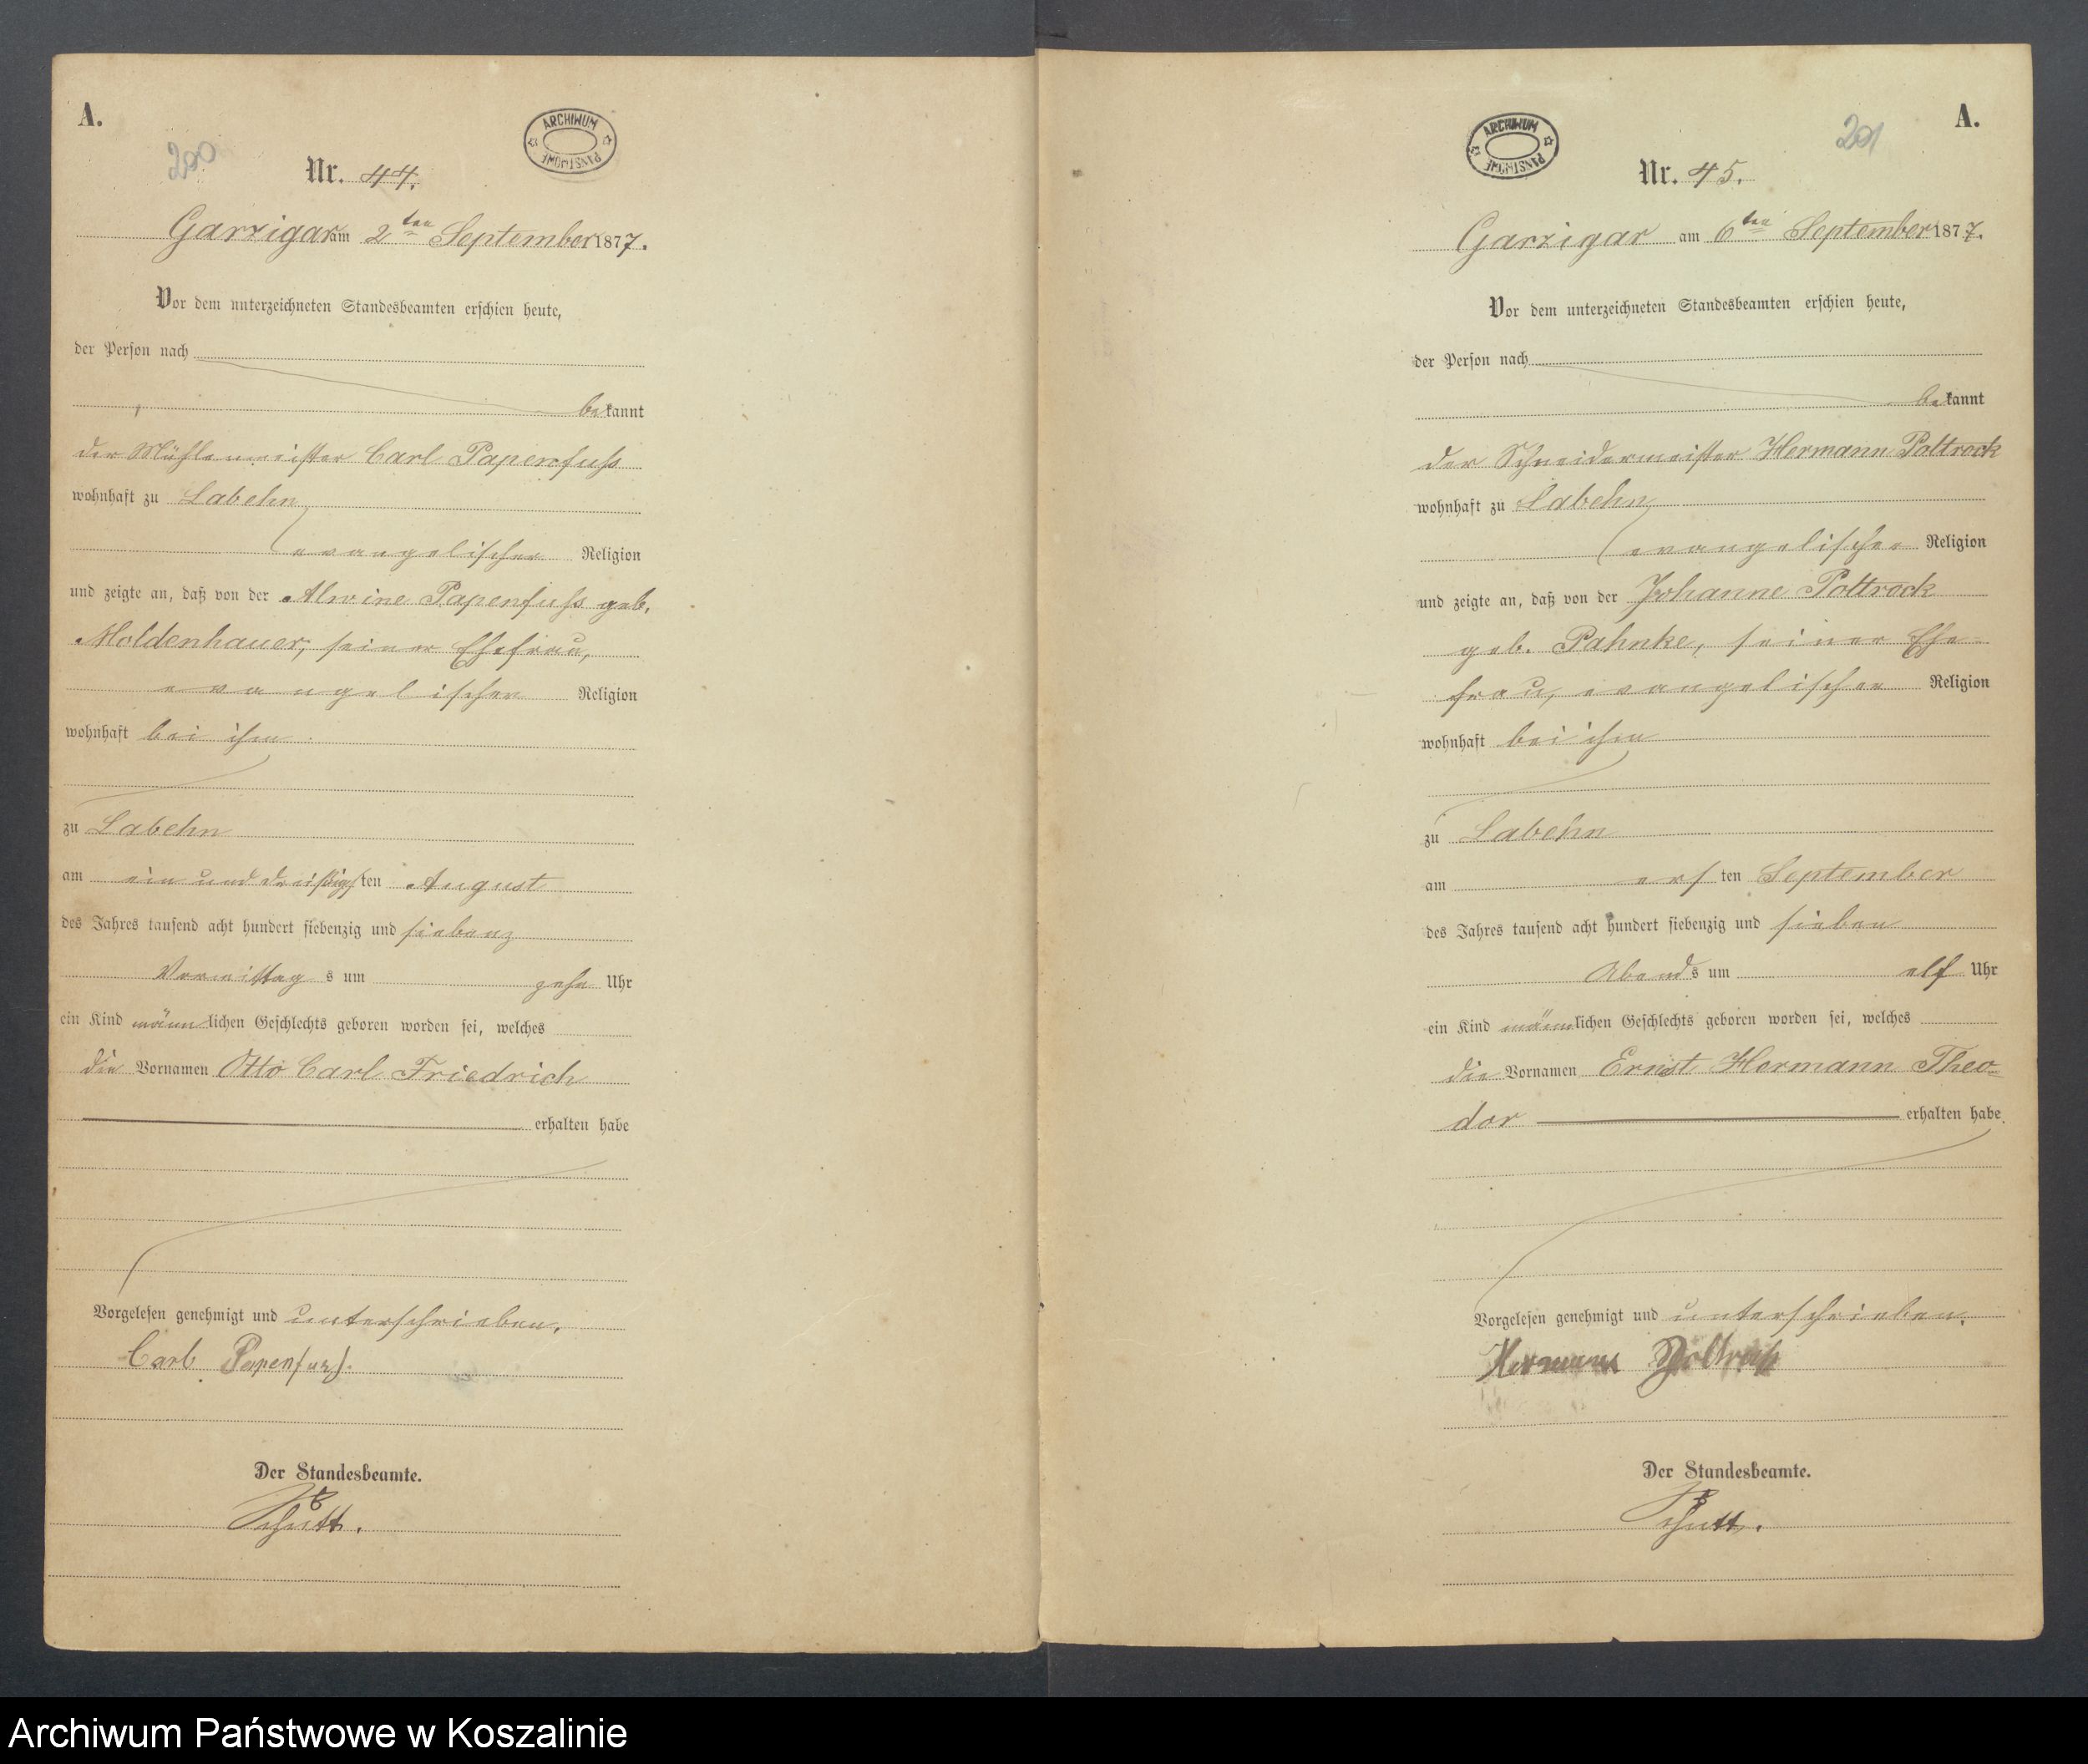 A.
200
Nr. 44.
ARCHIWUM PAŃSTWOWE
Garzigar am 2ten September 1877.
Vor dem unterzeichneten Standesbeamten erschien heute,
der Person nach
bekannt
der Mühlenmeister Carl Papenfuss
wohnhaft zu Labehn
evangelischer Religion
und zeigte an, daß von der Alwine Papenfuss geb.
Moldenhauer, seiner Ehefrau,
evangelischer Religion
wohnhaft bei ihm
zu Labehn
am ein und dreißigsten August
des Jahres tausend acht hundert siebenzig und sieben
Vormittags um zehn Uhr
ein Kind männlichen Geschlechts geboren worden sei, welches
die Vornamen Otto Carl Friedrich
erhalten habe
Vorgelesen genehmigt und unterschrieben.
Carl Papenfuß.
Der Standesbeamte.
Schütt.
A.
201
Nr. 45.
ARCHIWUM PAŃSTWOWE
Garzigar am 6ten September 1877.
Vor dem unterzeichneten Standesbeamten erschien heute,
der Person nach
bekannt
der Schneidermeister Hermann Poltrock
wohnhaft zu Labehn
evangelischer Religion
und zeigte an, daß von der Johanne Poltrock
geb. Pahnke, seiner Ehe-
frau, evangelischer Religion
wohnhaft bei ihm
zu Labehn
am ersten September
des Jahres tausend acht hundert siebenzig und sieben
Abends um elf Uhr
ein Kind männlichen Geschlechts geboren worden sei, welches
die Vornamen Ernst Hermann Theo-
dor erhalten habe.
Vorgelesen genehmigt und unterschrieben.
Hermann Poltrock
Der Standesbeamte.
Schütt.
Archiwum Państwowe w Koszalinie